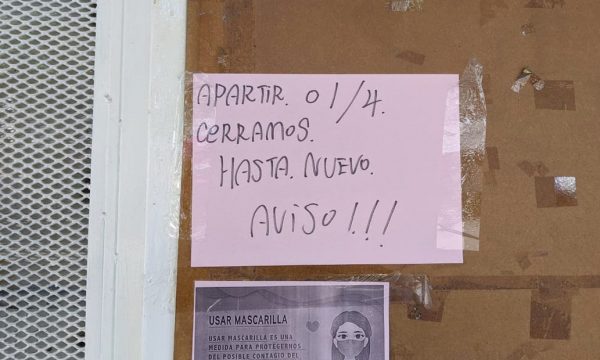 APARTIR. 01/4.
CERRAMOS.
HASTA. NUEVO.
AVISO!!!
USAR MASCARILLA
USAR MASCARILLA ES UNA
MEDIDA PARA PROTEGERNOS
DEL POSIBLE CONTAGIO DEL